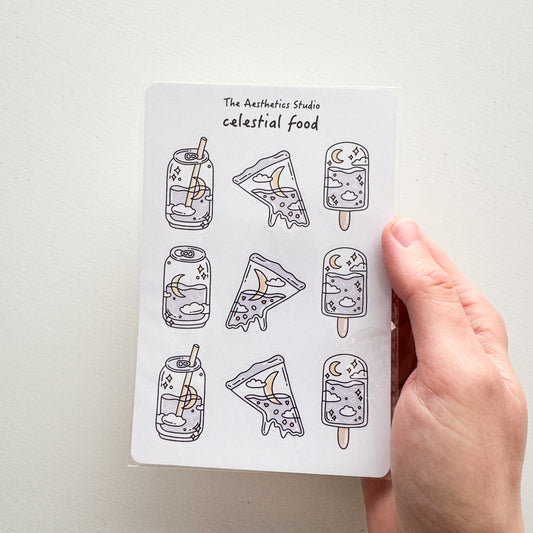 The Aesthetics Studio
celestial food